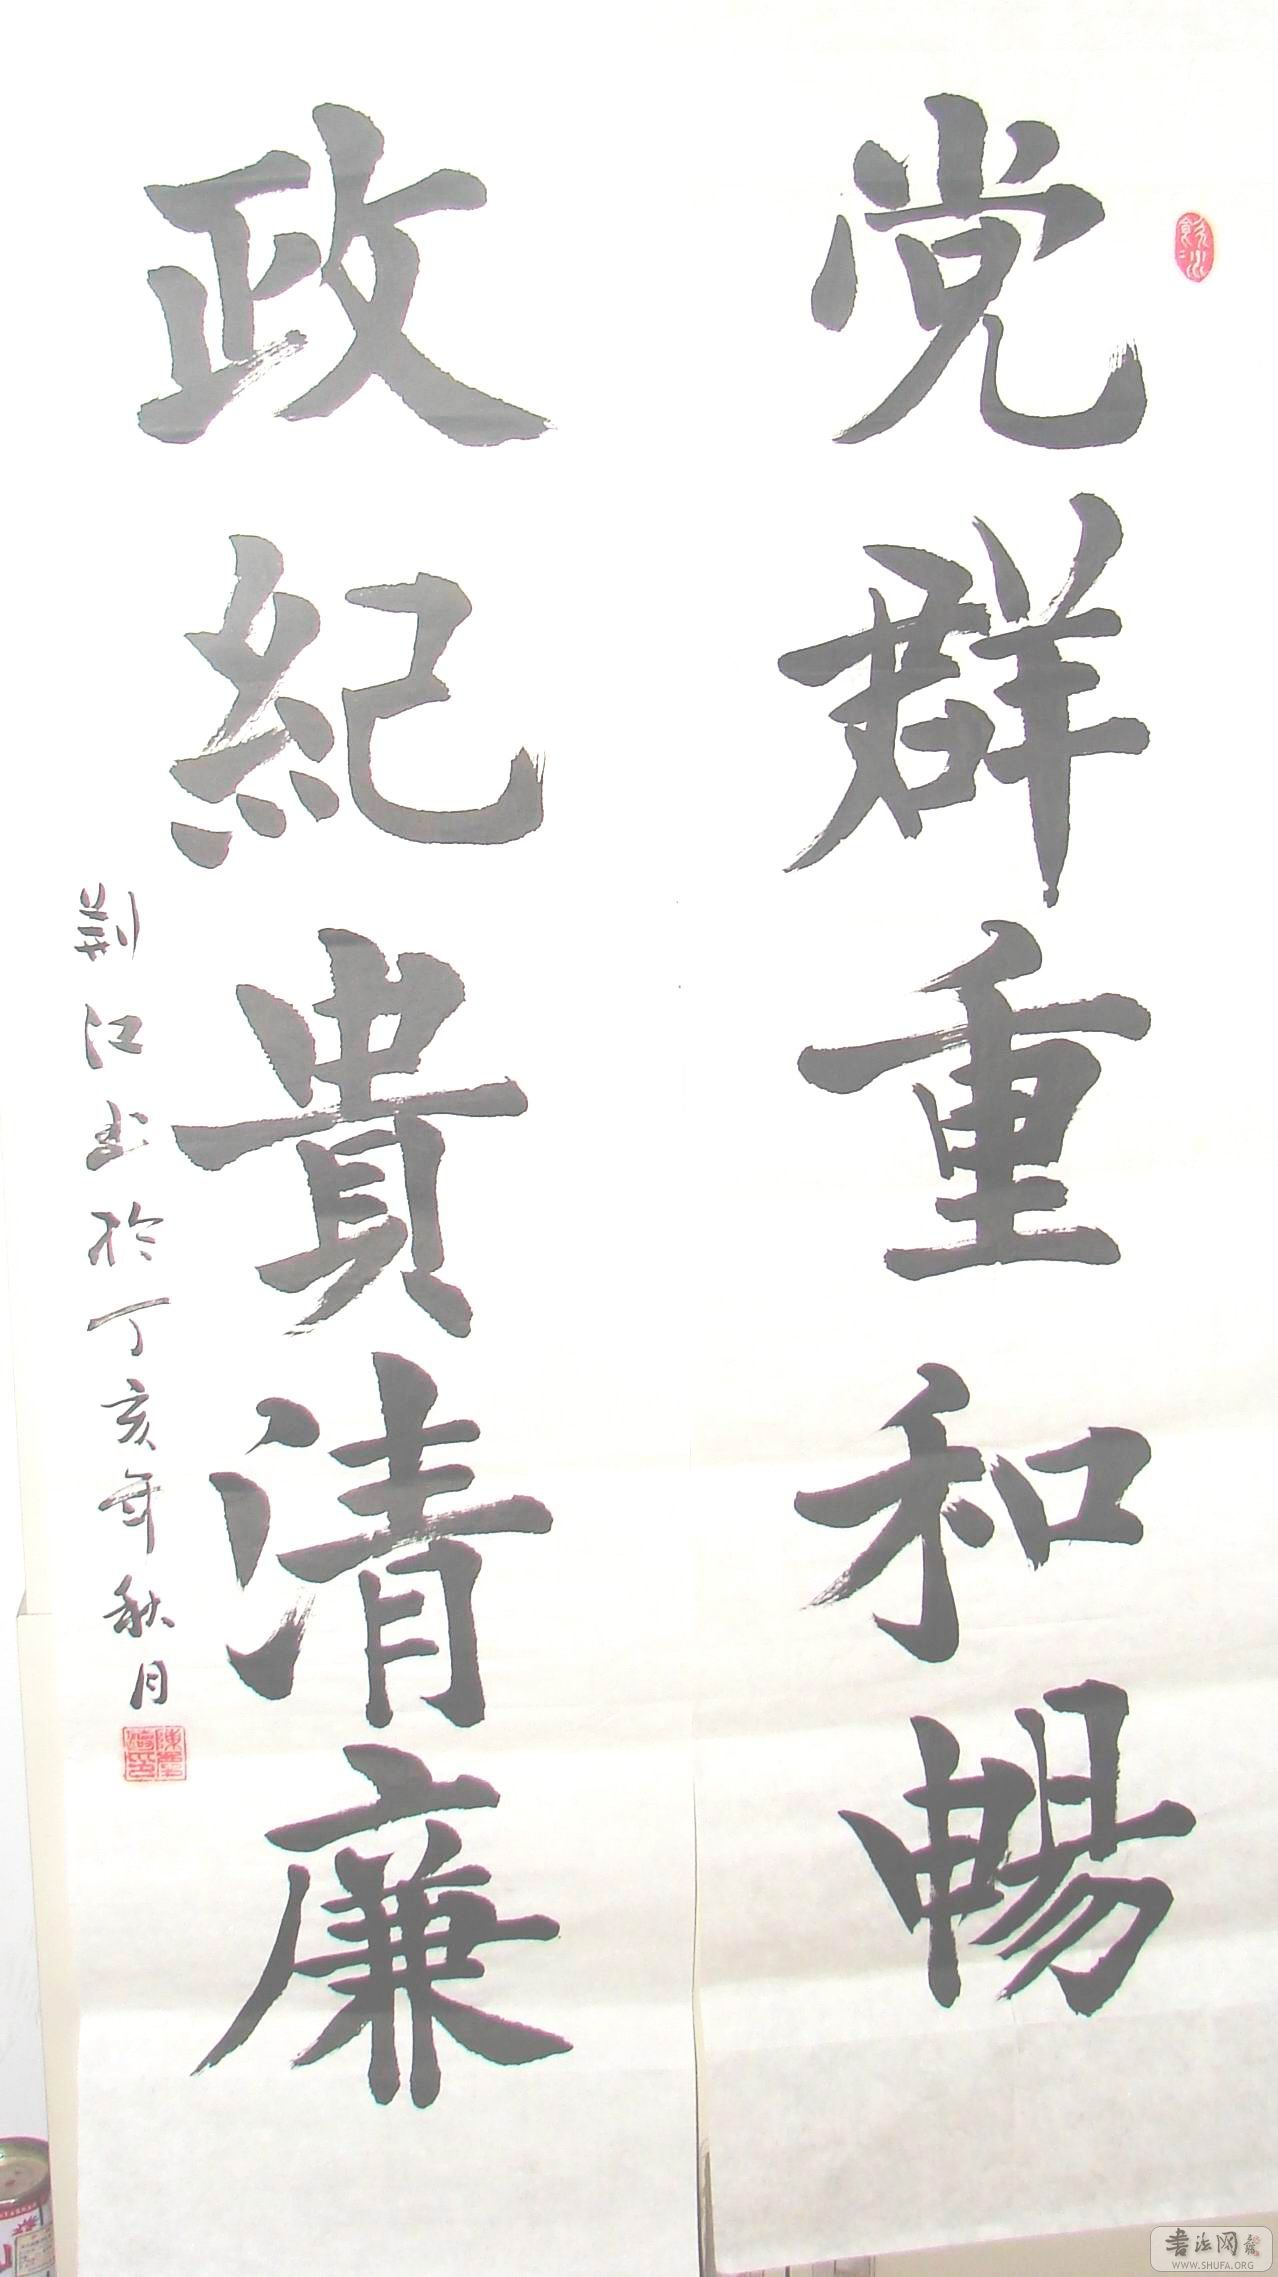 党群重和暢
政紀貴清廉
荆江书於丁亥年秋月
书法网
WWW.SHUFA.ORG